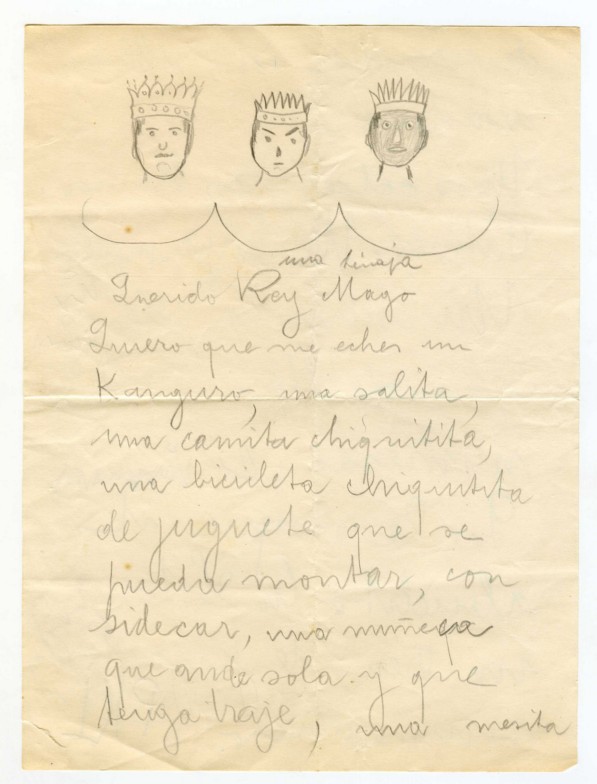 una tinaja
Querido Rey Mago
Quiero que me eches un
Kanguro, una salita,
una camita chiquitita,
una bicicleta chiquitita
de juguete que se
pueda montar, con
sidecar, una muñeca
que ande sola y que
tenga traje, una mesita